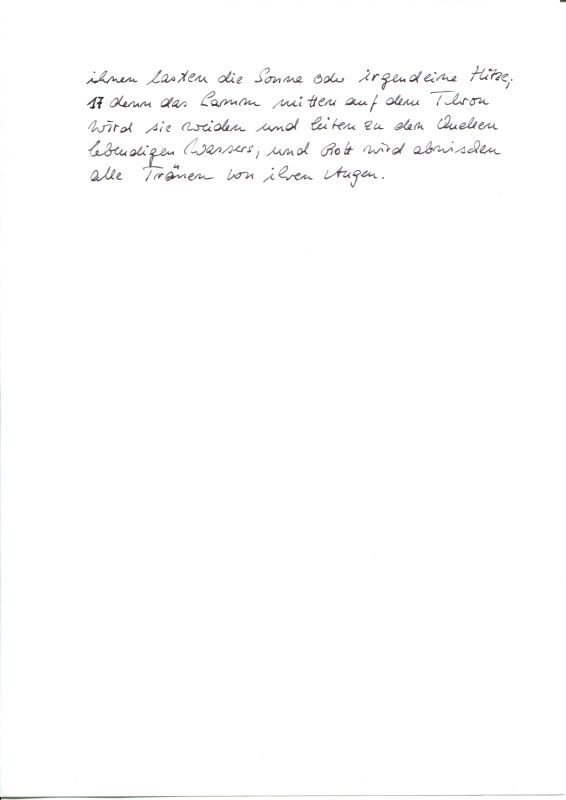 ihnen lasten die Sonne oder irgendeine Hitze;
17 denn das Lamm mitten auf dem Thron
wird sie weiden und leiten zu den Quellen
lebendigen Wassers, und Gott wird abwischen
alle Tränen von ihren Augen.